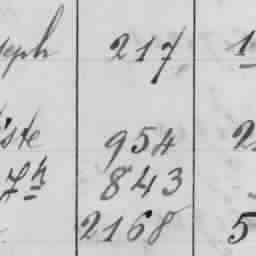 seph 217 1
iste 954 2
Jh 843
2168 5